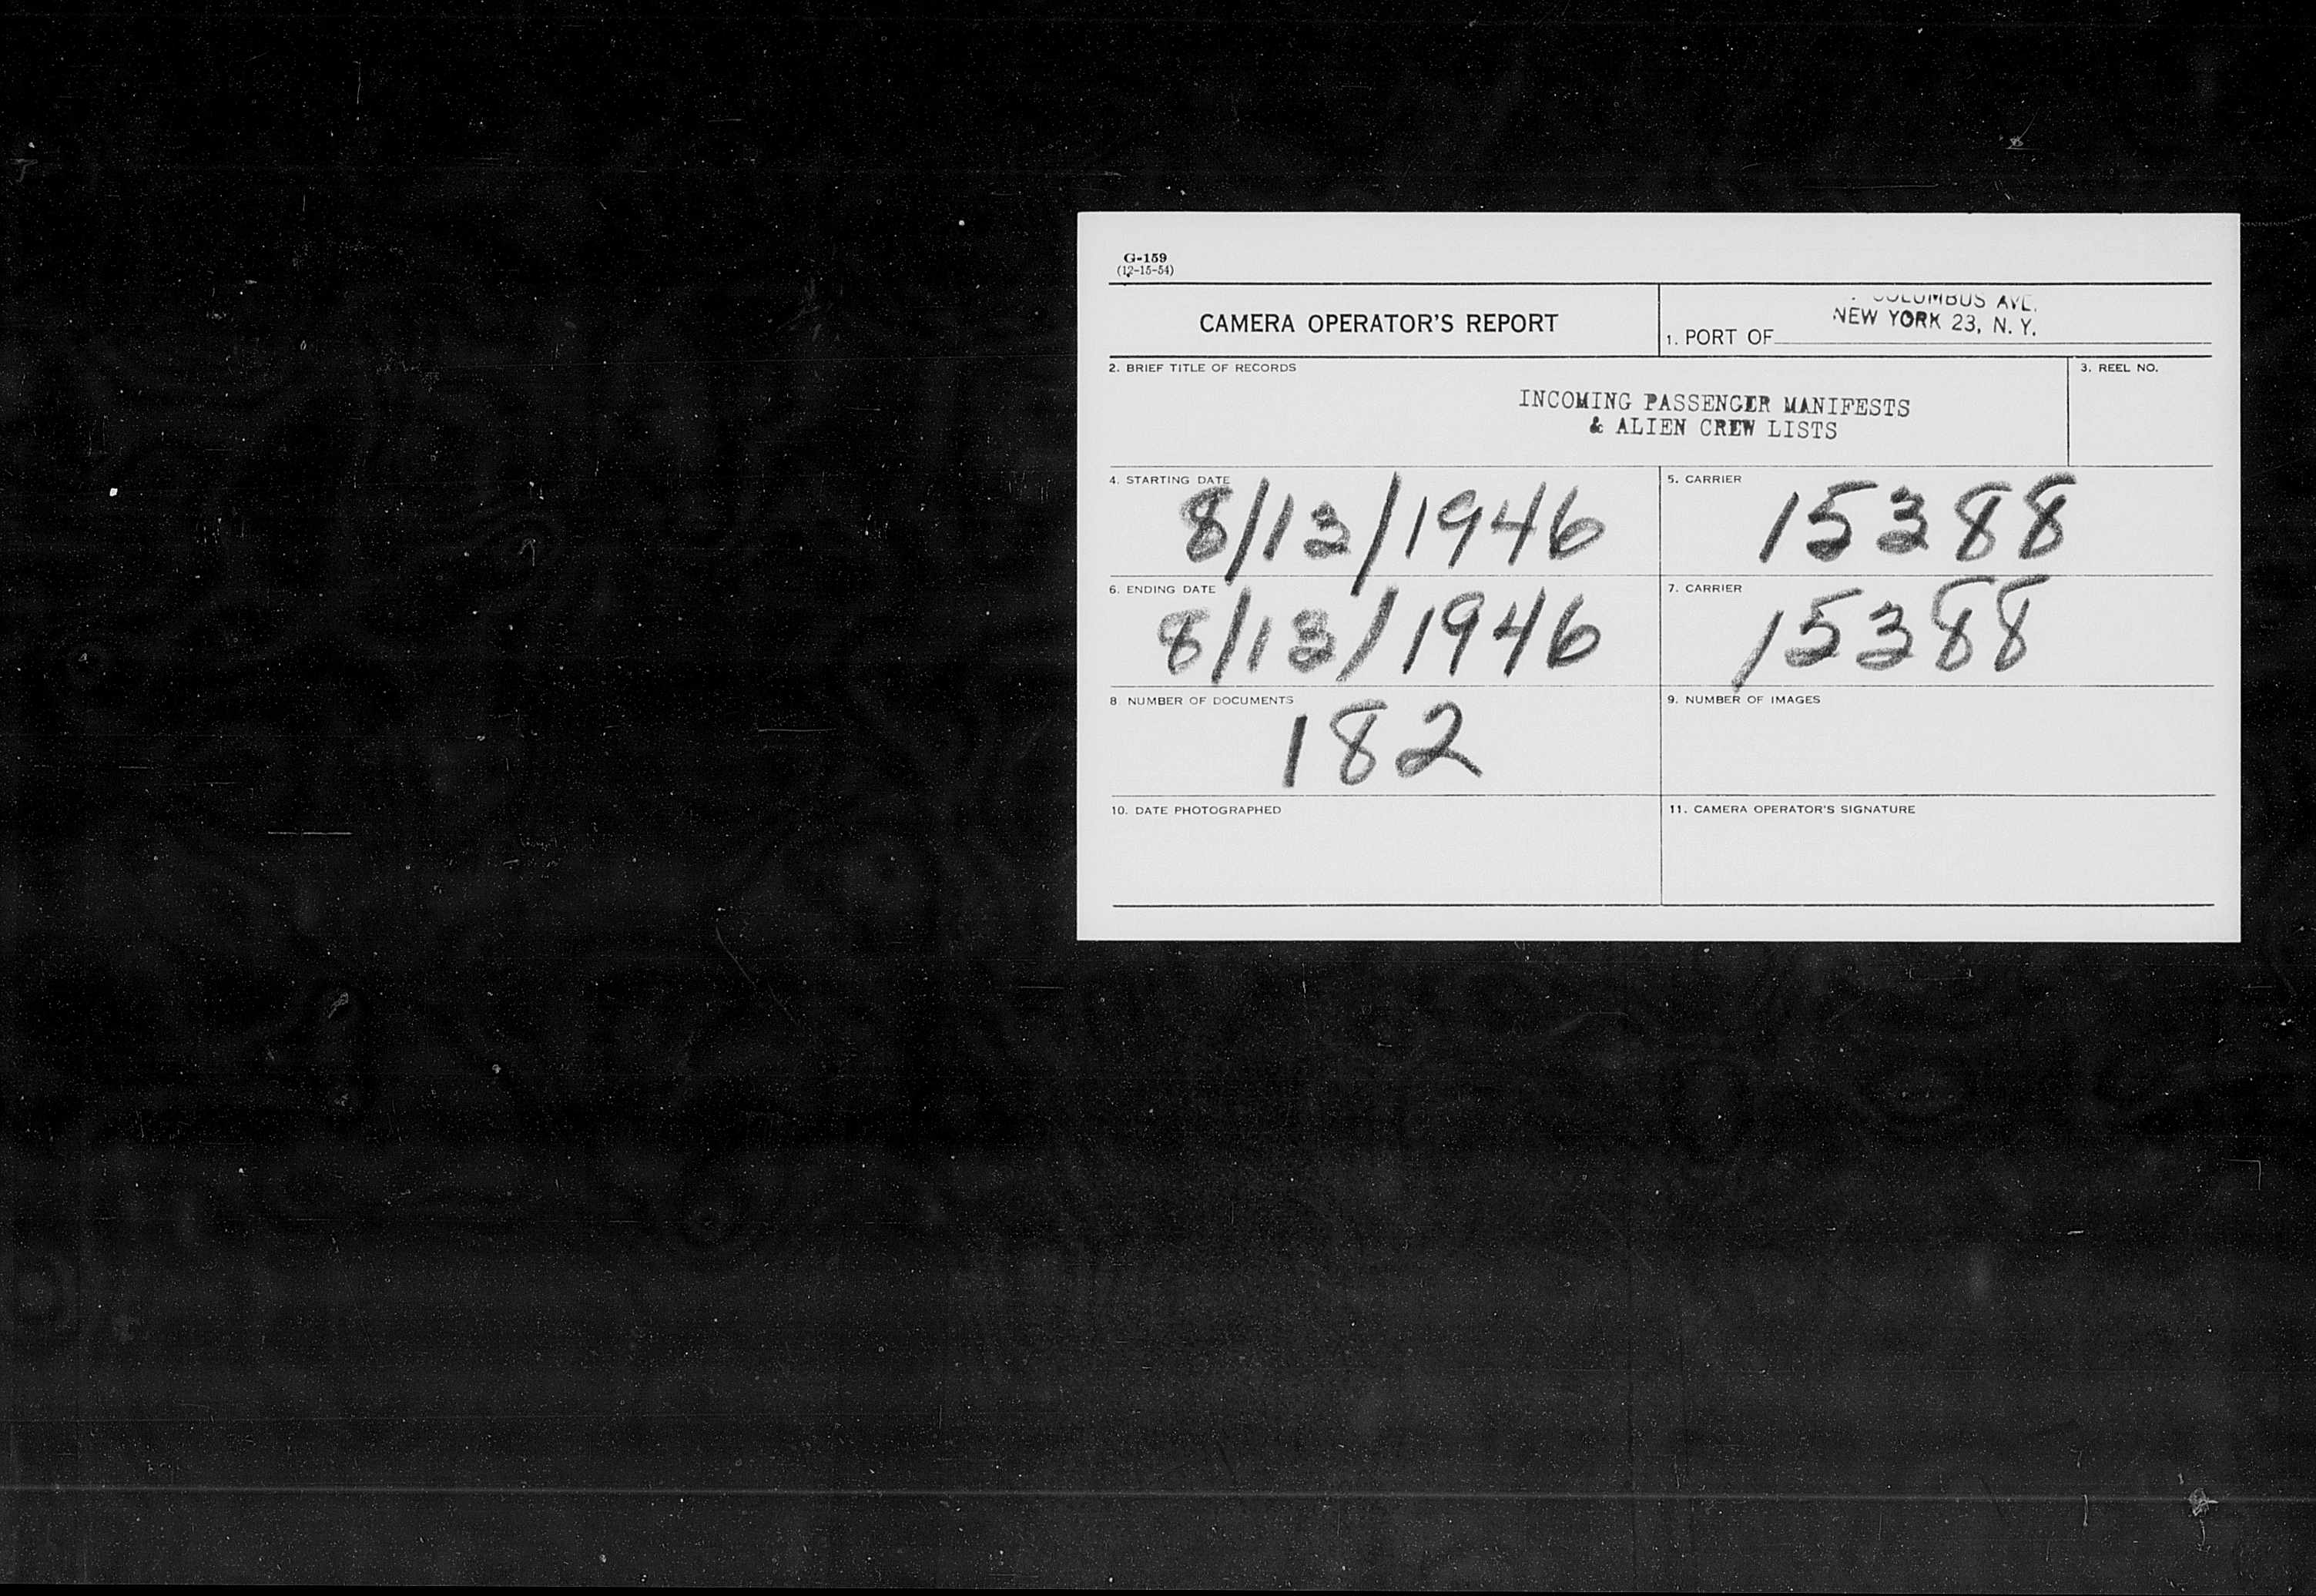 G-159
(12-15-54)
CAMERA OPERATOR'S REPORT
COLUMBUS AVE.
NEW YORK 23, N. Y.
1. PORT OF
2. BRIEF TITLE OF RECORDS
3. REEL NO.
INCOMING PASSENGER MANIFESTS
& ALIEN CREW LISTS
4. STARTING DATE
8/13/1946
5. CARRIER
15388
6. ENDING DATE
8/13/1946
7. CARRIER
15388
8 NUMBER OF DOCUMENTS
182
9. NUMBER OF IMAGES
10. DATE PHOTOGRAPHED
11. CAMERA OPERATOR'S SIGNATURE